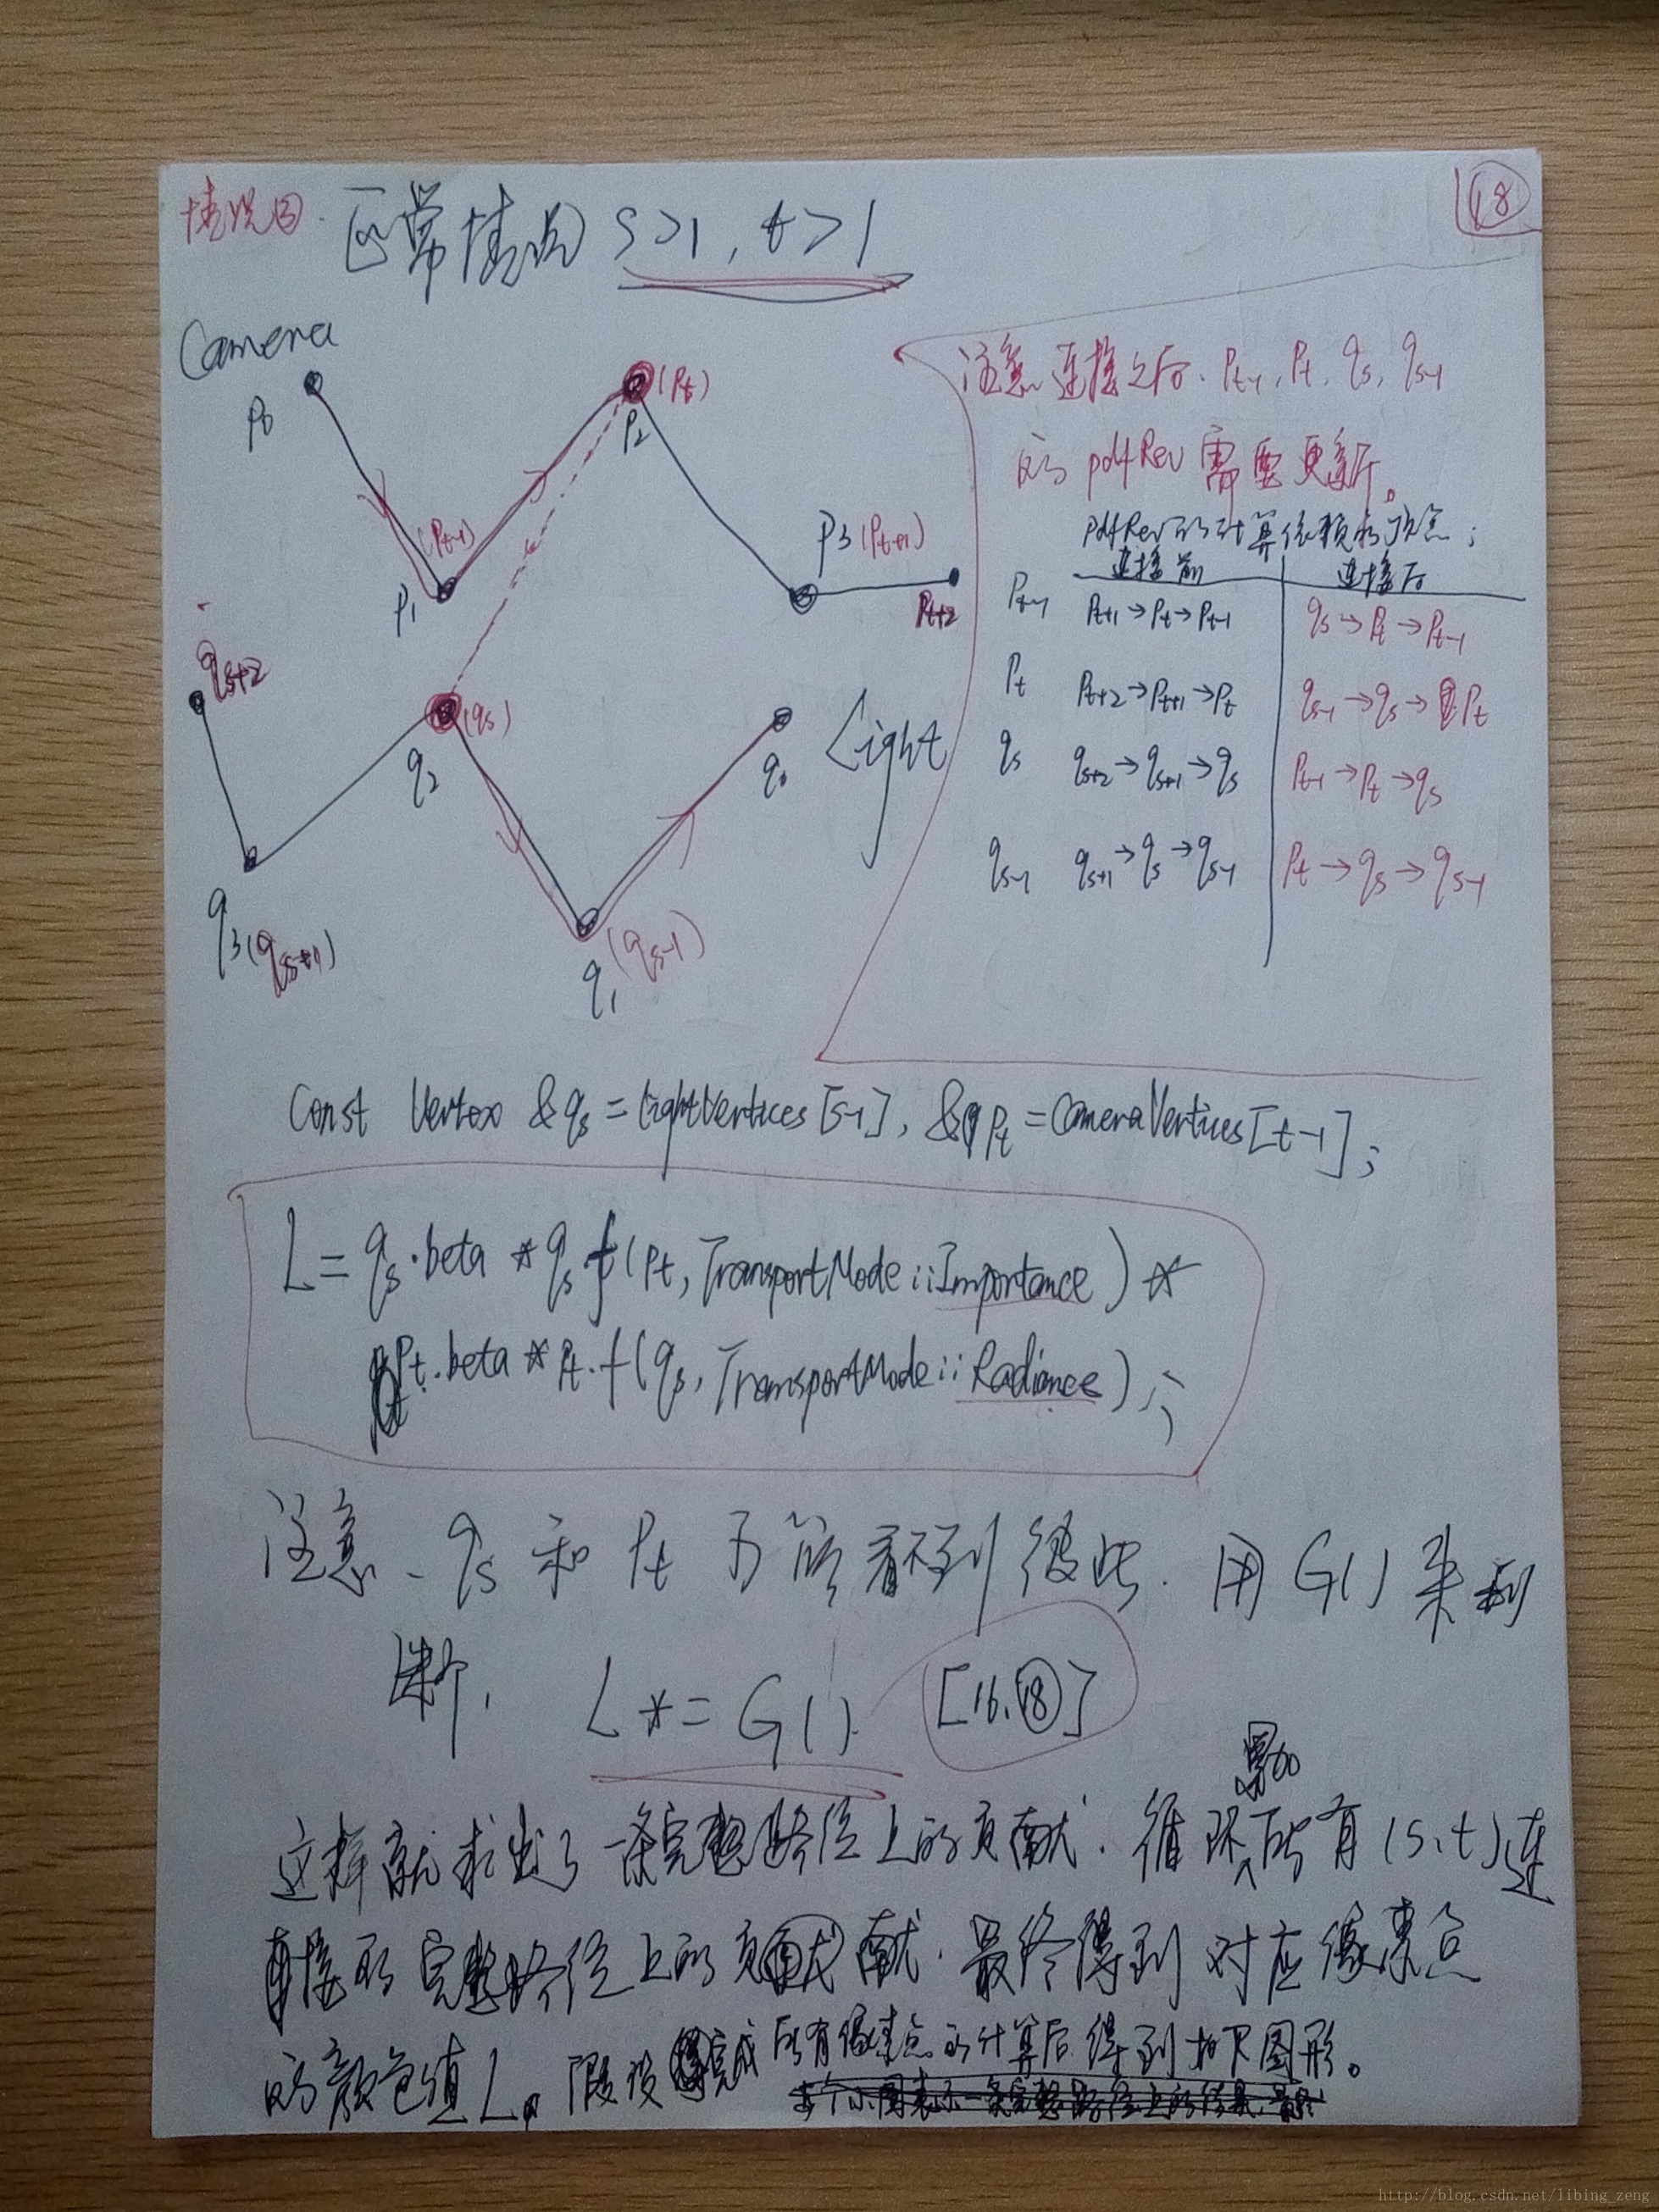 情况四. 正常情况 s>1, t>1
18
Camera
p0
(Pt)
P2
(Pt-1)
P1
P3 (Pt+1)
Pt+2
qs+2
(qs)
q2
q0
Light
q3 (qs+1)
q1 (qs-1)
注意 连接之后. Pt-1, Pt, qs, qs-1
的 pdfRev 需要更新。
pdfRev的计算依赖的顶点;
连接前 连接后
Pt-1 Pt+1→Pt→Pt-1 qs→Pt→Pt-1
Pt Pt+2→Pt+1→Pt qs-1→qs→Pt
qs qs+2→qs+1→qs Pt-1→Pt→qs
qs-1 qs+1→qs→qs-1 Pt→qs→qs-1
Const Vertex &qs = lightVertices[s-1], &Pt = cameraVertices[t-1];
L = qs.beta * qs.f(Pt, TransportMode::Importance) *
Pt.beta * Pt.f(qs, TransportMode::Radiance);
注意、qs 和 Pt 可能看不到彼此. 用 G() 来判
断, L *= G(). [16.18]
累加
这样就求出了一条完整路径上的贡献. 循环所有 (s,t) 连
接的完整路径上的贡献. 最终得到对应像素点
的颜色值L。假设完成所有像素点的计算后得到如下图形。
http://blog.csdn.net/libing_zeng